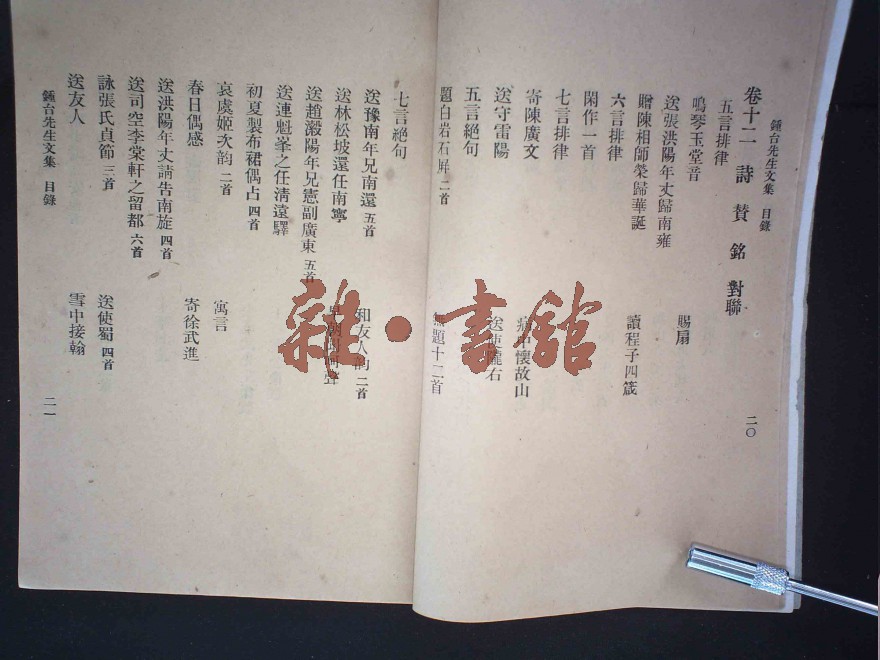 鍾台先生文集 目錄
卷十二 詩 贊 銘 對聯
五言排律
鳴琴玉堂音 賜扇
送張洪陽年丈歸南雍
贈陳相師榮歸華誕 讀程子四箴
六言排律
閑作一首
七言排律
寄陳廣文 病中懷故山
送守雷陽 送使隴右
五言絕句
題白岩石屏 二首 無題十二首
二〇
七言絕句
送豫南年兄南還 五首 和友人韵 二首
送林松坡還任南寧
送趙瀫陽年兄憲副廣東 五首
送連魁峯之任清遠驛
初夏製布裙偶占 四首
哀虞姬次韵 二首 寓言
春日偶感 寄徐武進
送洪陽年丈請告南旋 四首
送司空李棠軒之留都 六首
詠張氏貞節 三首 送使蜀 四首
送友人 雪中接翰
鍾台先生文集 目錄
二一
雜·書館